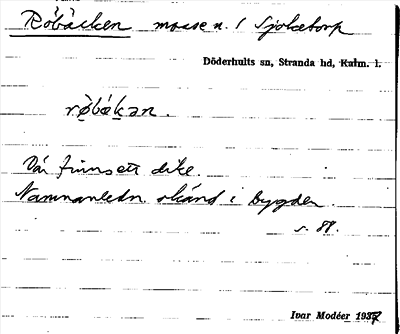 Röbäcken mosse n. / Sjöketorp
Döderhults sn, Stranda hd, Kalm. l.
rø̀bǽkən.
Där finns ett dike.
Namnanledn. okänd i bygden.
s. 88.
Ivar Modéer 1937